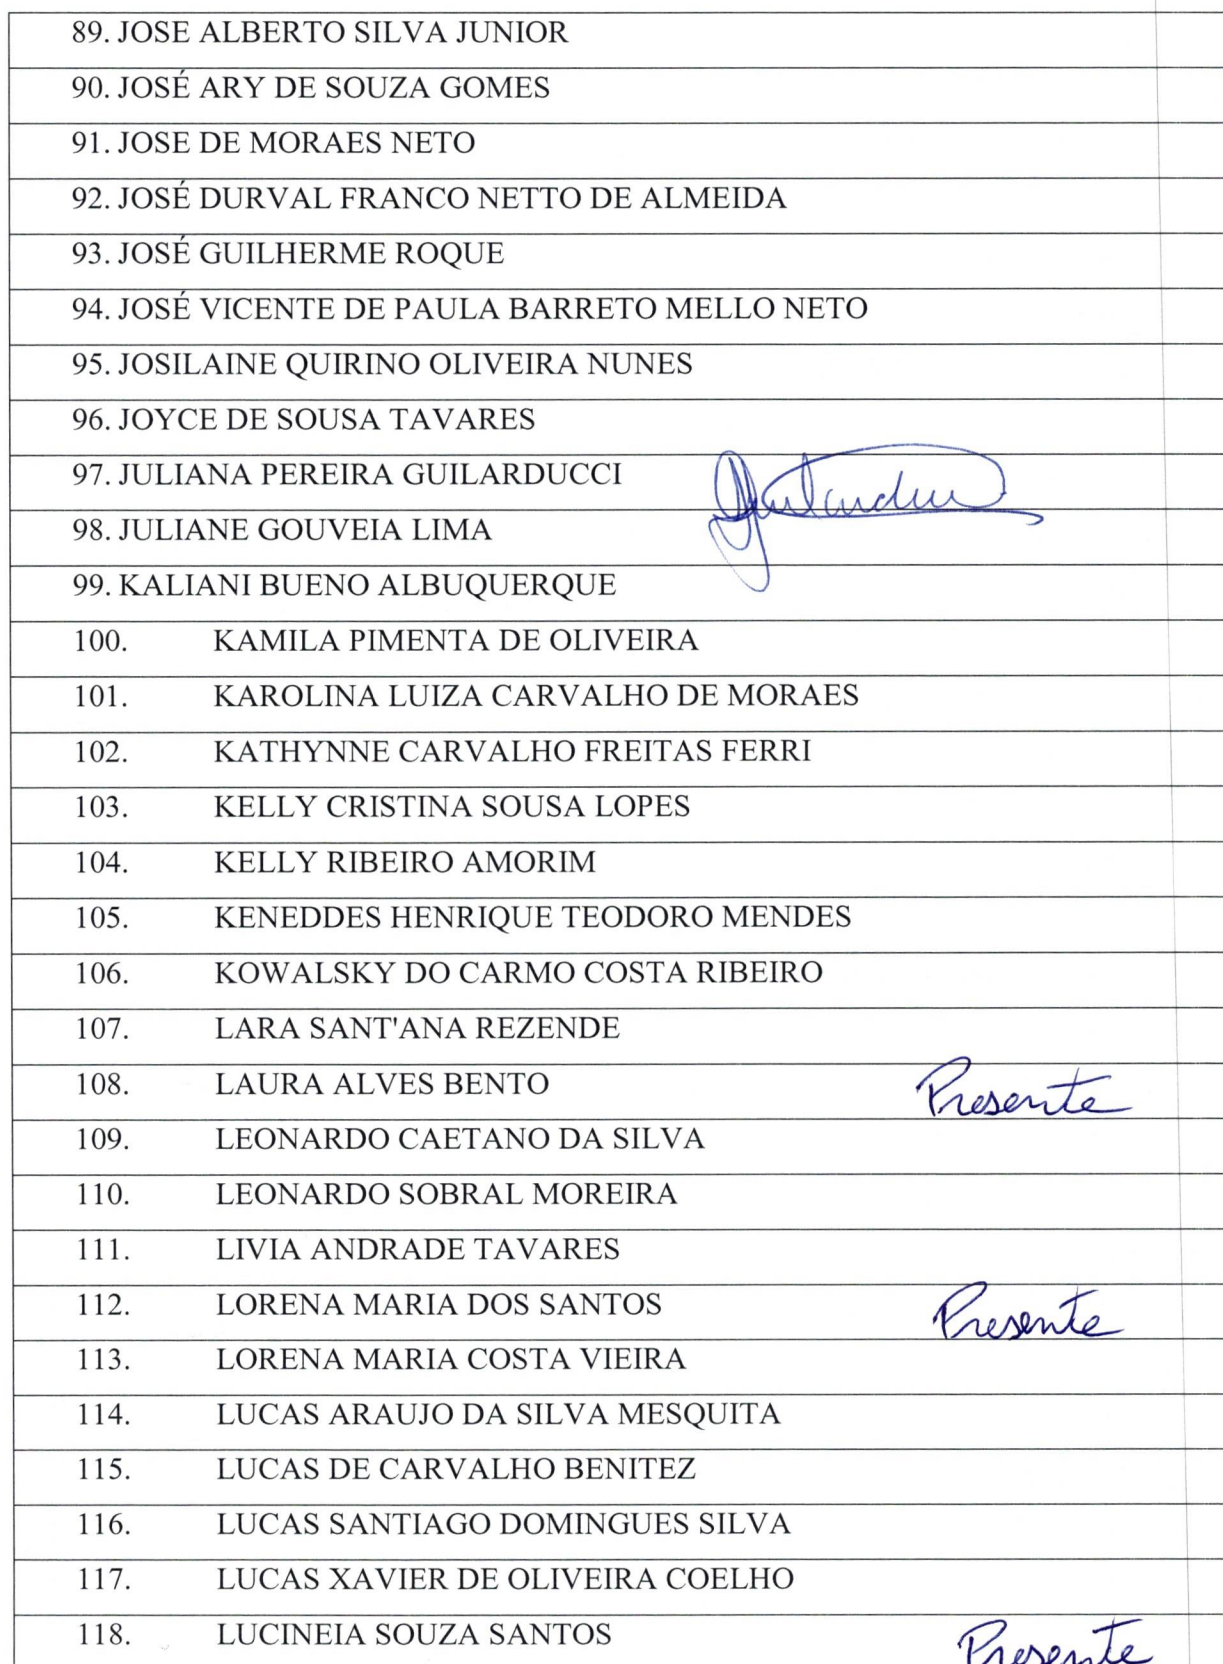 89. JOSE ALBERTO SILVA JUNIOR
90. JOSÉ ARY DE SOUZA GOMES
91. JOSE DE MORAES NETO
92. JOSÉ DURVAL FRANCO NETTO DE ALMEIDA
93. JOSÉ GUILHERME ROQUE
94. JOSÉ VICENTE DE PAULA BARRETO MELLO NETO
95. JOSILAINE QUIRINO OLIVEIRA NUNES
96. JOYCE DE SOUSA TAVARES
97. JULIANA PEREIRA GUILARDUCCI
98. JULIANE GOUVEIA LIMA
99. KALIANI BUENO ALBUQUERQUE
100. KAMILA PIMENTA DE OLIVEIRA
101. KAROLINA LUIZA CARVALHO DE MORAES
102. KATHYNNE CARVALHO FREITAS FERRI
103. KELLY CRISTINA SOUSA LOPES
104. KELLY RIBEIRO AMORIM
105. KENEDDES HENRIQUE TEODORO MENDES
106. KOWALSKY DO CARMO COSTA RIBEIRO
107. LARA SANT'ANA REZENDE
108. LAURA ALVES BENTO Presente
109. LEONARDO CAETANO DA SILVA
110. LEONARDO SOBRAL MOREIRA
111. LIVIA ANDRADE TAVARES
112. LORENA MARIA DOS SANTOS Presente
113. LORENA MARIA COSTA VIEIRA
114. LUCAS ARAUJO DA SILVA MESQUITA
115. LUCAS DE CARVALHO BENITEZ
116. LUCAS SANTIAGO DOMINGUES SILVA
117. LUCAS XAVIER DE OLIVEIRA COELHO
118. LUCINEIA SOUZA SANTOS Presente